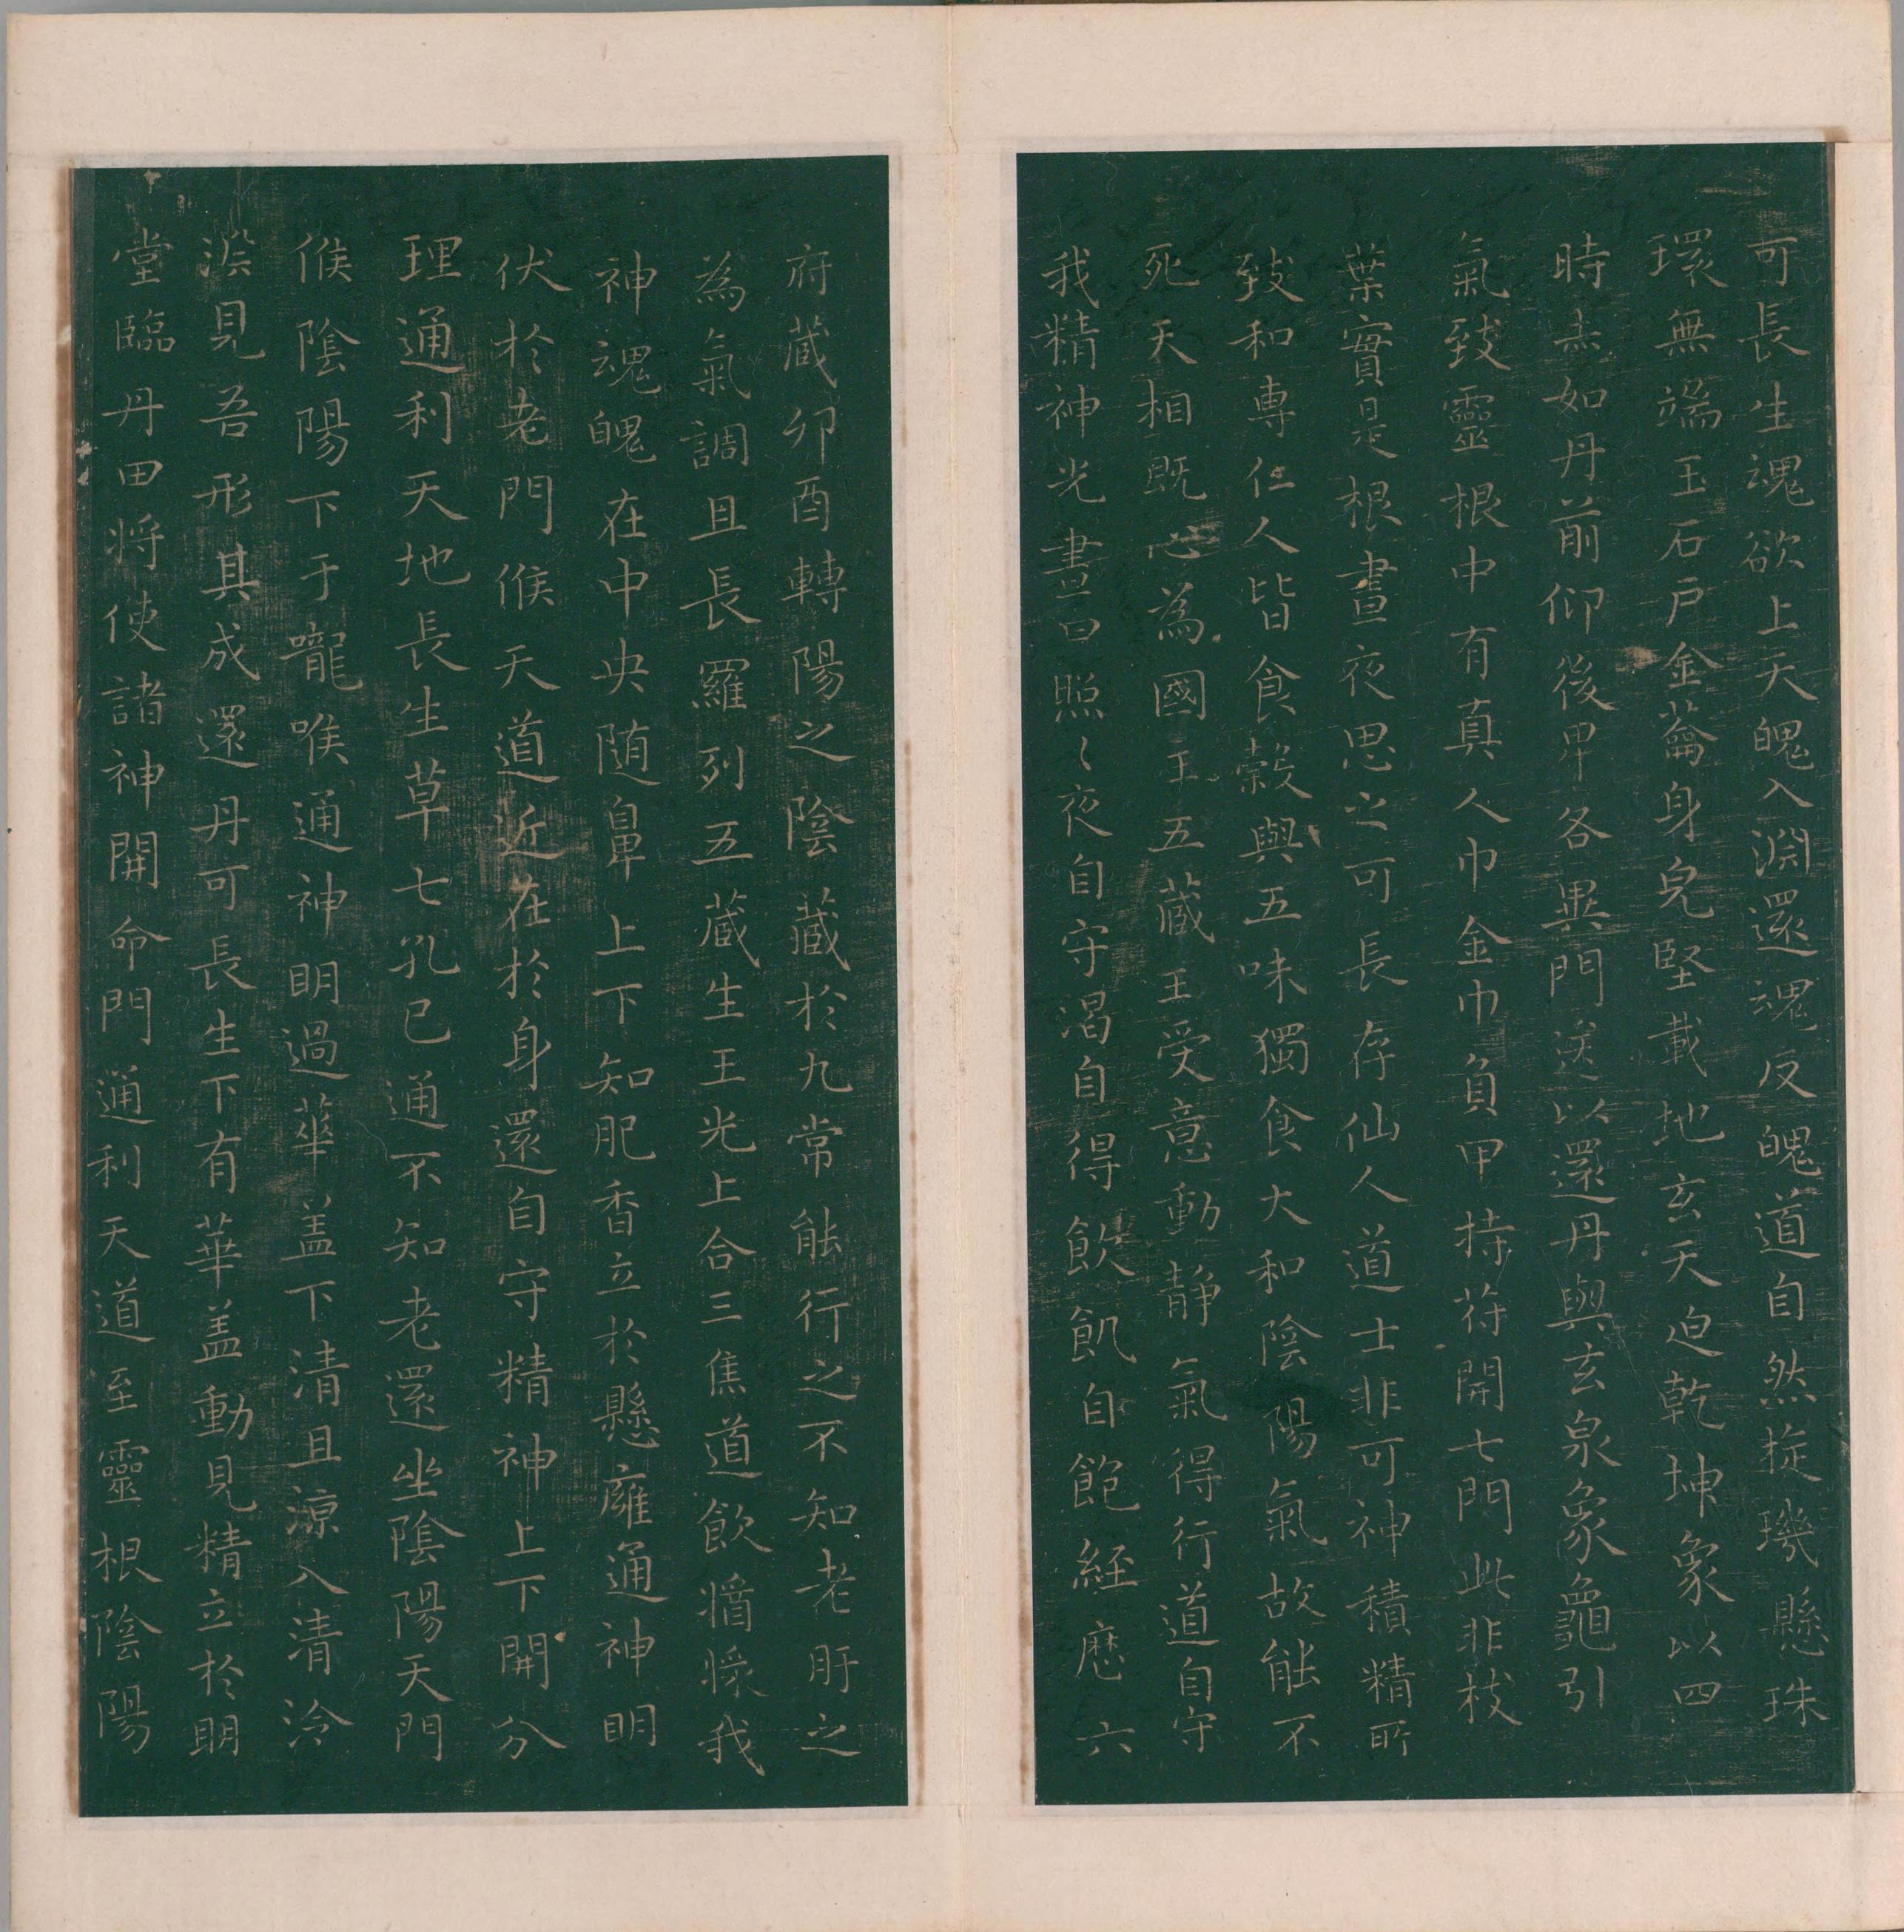 可長生魂欲上天魄入淵還魂反魄道自然旋璣懸珠
環無端玉石戶金蘥身皃堅載地玄天迫乾坤象以四
時赤如丹前仰後卑各異門送以還丹與玄泉象龜引
氣致靈根中有真人巾金巾負甲持苻開七門此非枝
葉實是根晝夜思之可長存仙人道士非可神積精所
致和專仁人皆食穀與五味獨食大和陰陽氣故能不
死天相既心為國主五藏王受意動靜氣得行道自守
我精神光晝日照〻夜自守渴自得飲飢自飽經歷六
府藏卯酉轉陽之陰藏於九常能行之不知老肝之
為氣調且長羅列五藏生王光上合三焦道飲醬㵪我
神魂魄在中央随鼻上下知肥香立於懸廱通神明
伏於老門候天道近在於身還自守精神上下開分
理通利天地長生草七孔已通不知老還坐陰陽天門
候陰陽下于嚨喉通神明過華盖下清且涼入清泠
淵見吾形其成還丹可長生下有華盖動見精立於明
堂臨丹田将使諸神開命門通利天道至靈根陰陽